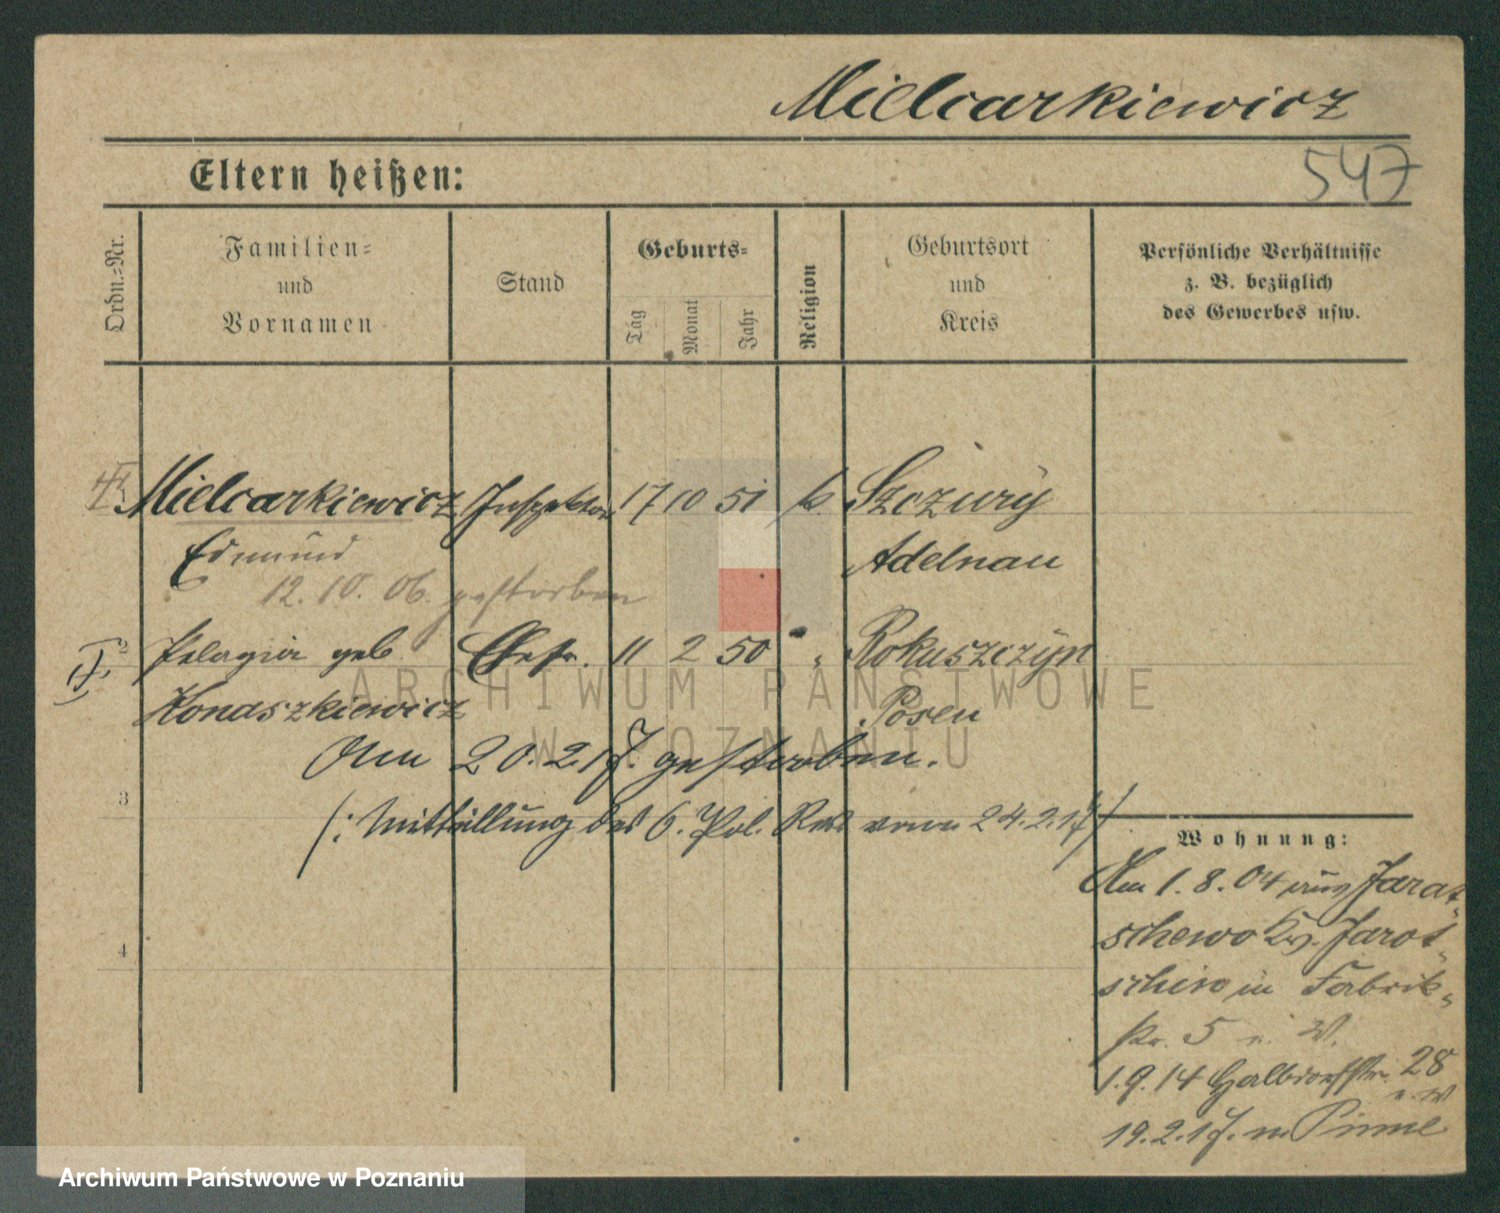 Mielcarkiewicz
547
Eltern heißen:
Ordn.=Nr.
Familien=
und
Vornamen
Stand
Geburts=
Tag
Monat
Jahr
Religion
Geburtsort
und
Kreis
Persönliche Verhältnisse
z. B. bezüglich
des Gewerbes usw.
Mielcarkiewicz Inspektor 17 10 51 k. Szczury
Edmund Adelnau
12. 10. 06. gestorben
2 Pelagia geb Ehefr. 11 2 50 " Rokuszczyn
Konaszkiewicz Posen
Am 20. 2. 17. gestorben.
3
(: Mitteillung des 6. Pol. Rev vom 24.2.17 /
Wohnung:
Am 1. 8. 04 aus Jarat-
schewo Kr. Jarot-
schin in Fabrik-
str. 5 u. W.
1.9.14 Halbdorfstr. 28
u. W
19. 2. 17. n Pinne
4
ARCHIWUM PAŃSTWOWE
W POZNANIU
Archiwum Państwowe w Poznaniu